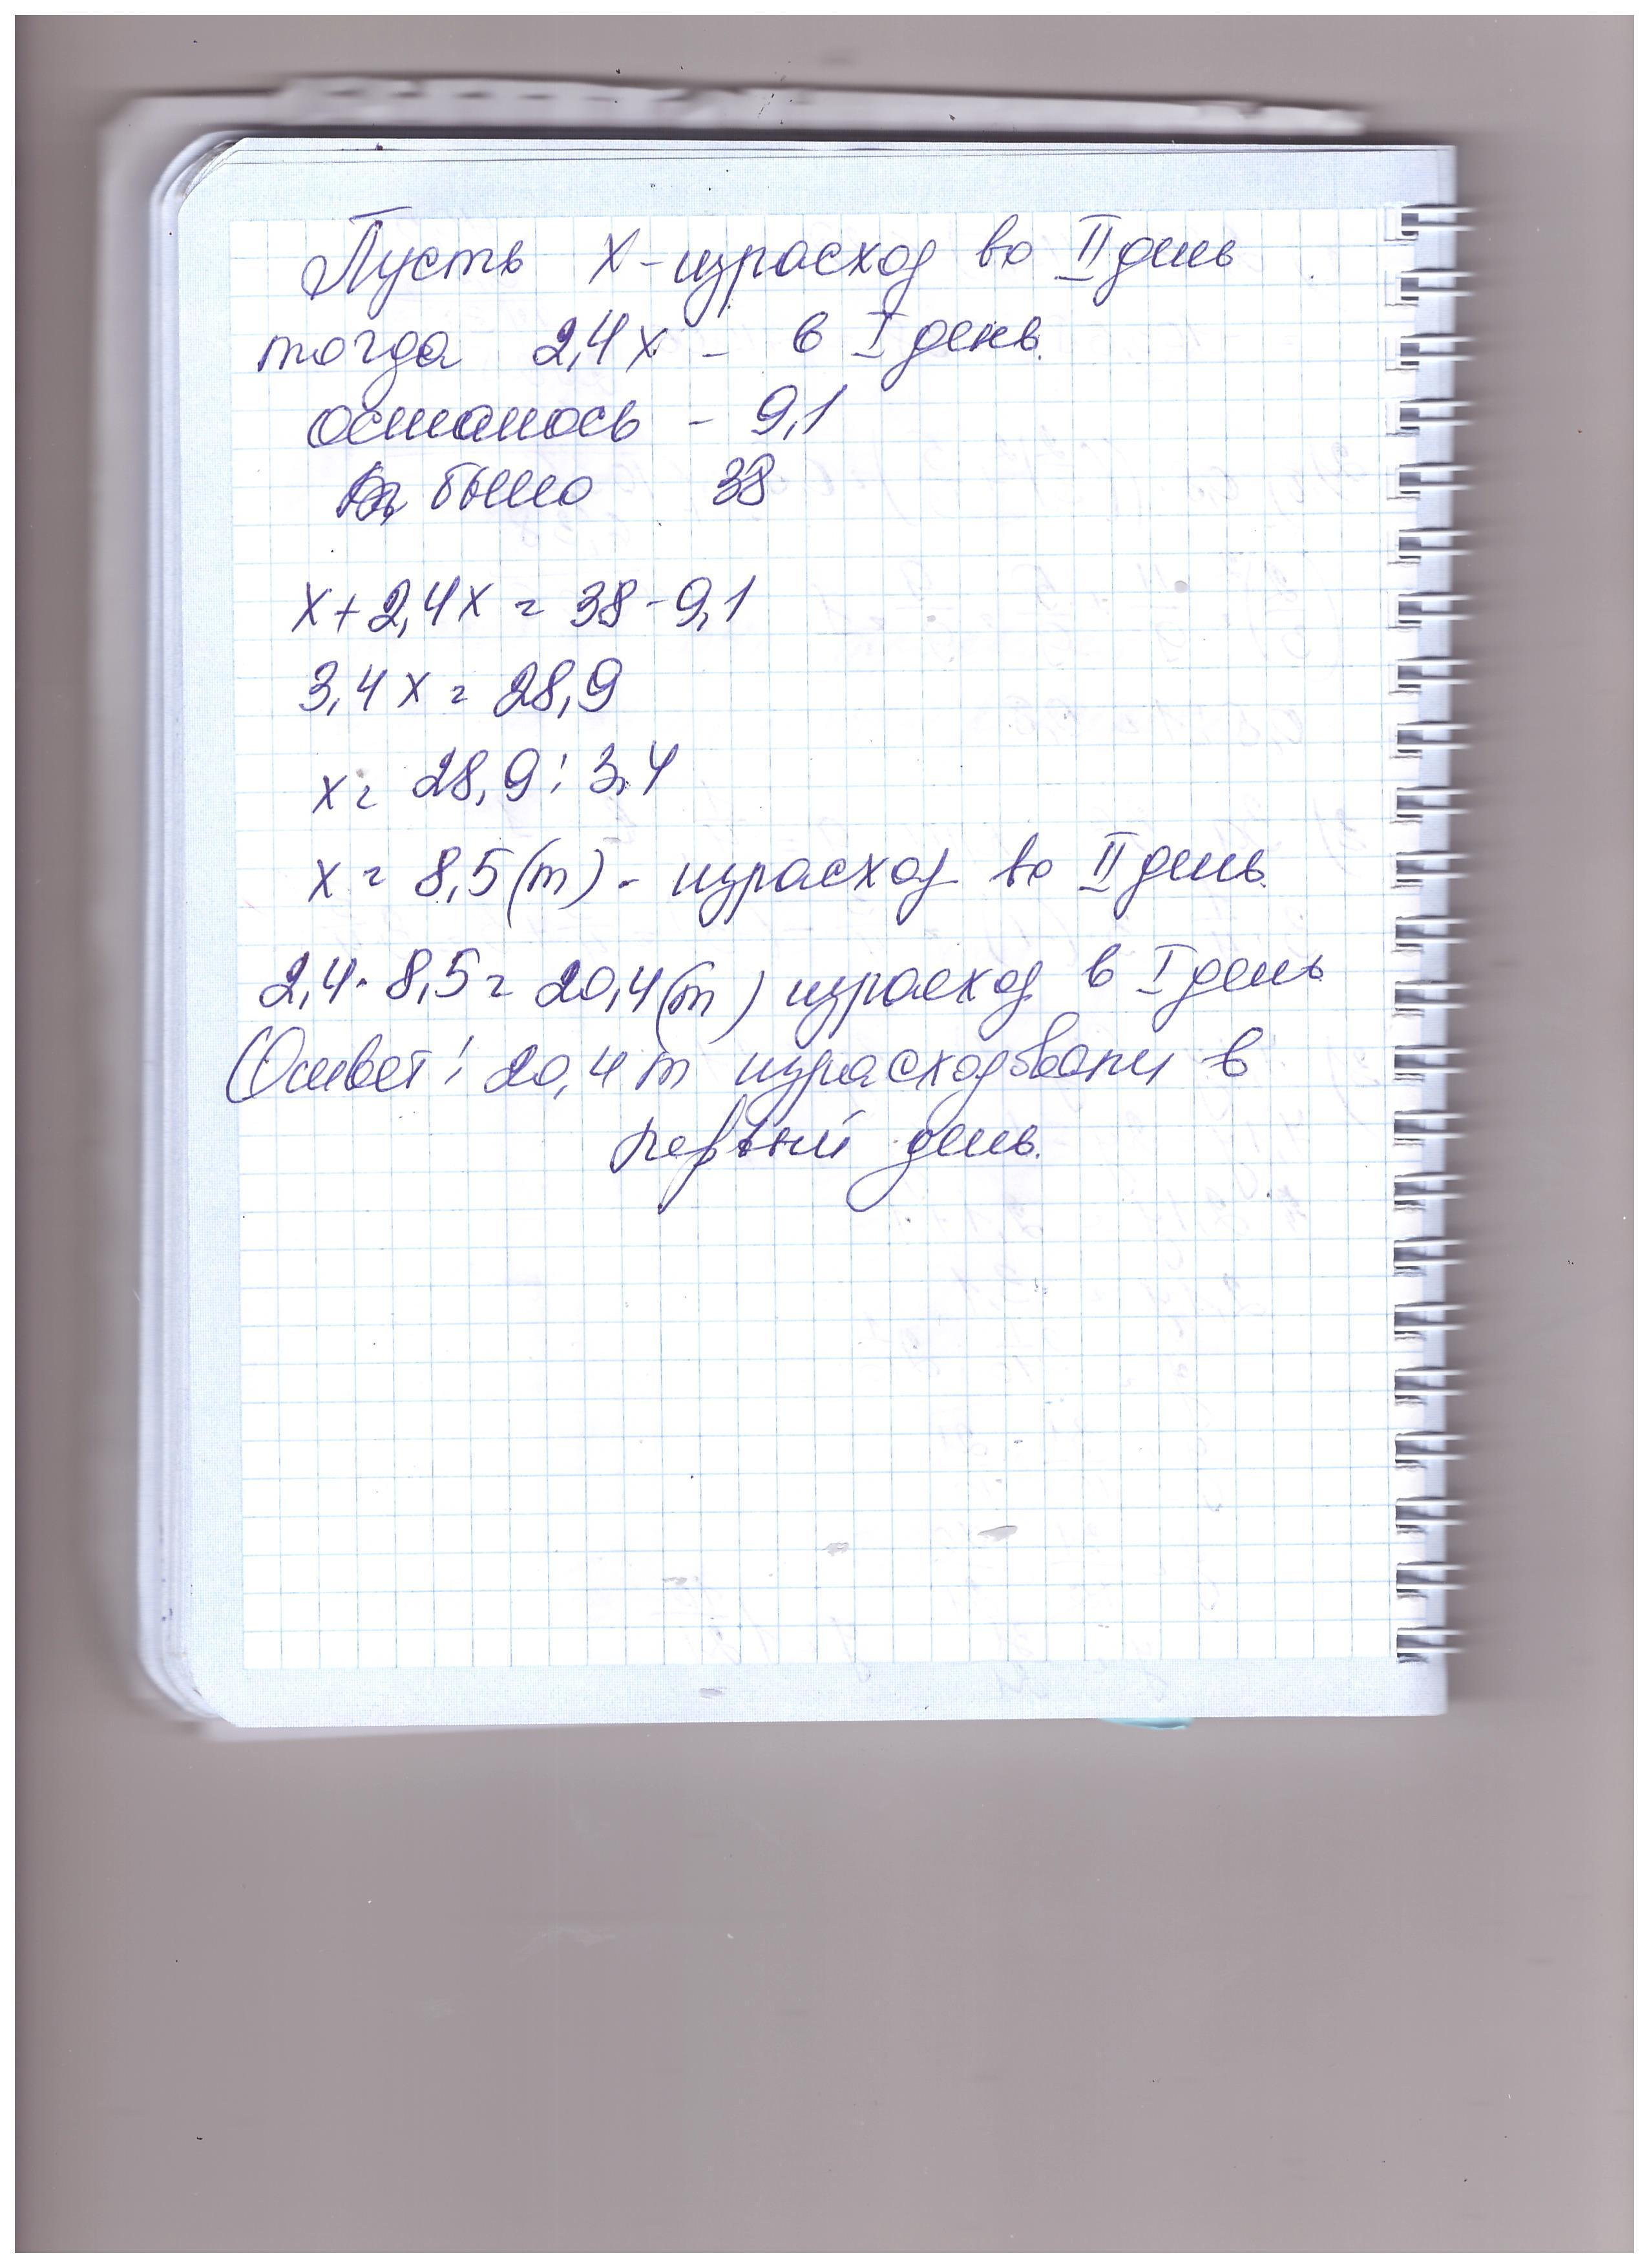 Пусть x - израсход во II день
тогда 2,4x - в I день.
осталось - 9,1
было 38
x + 2,4x = 38 - 9,1
3,4x = 28,9
x = 28,9 : 3,4
x = 8,5 (т) - израсход во II день.
2,4 · 8,5 = 20,4 (т) израсход в I день
Ответ: 20,4 т израсходовали в
первый день.